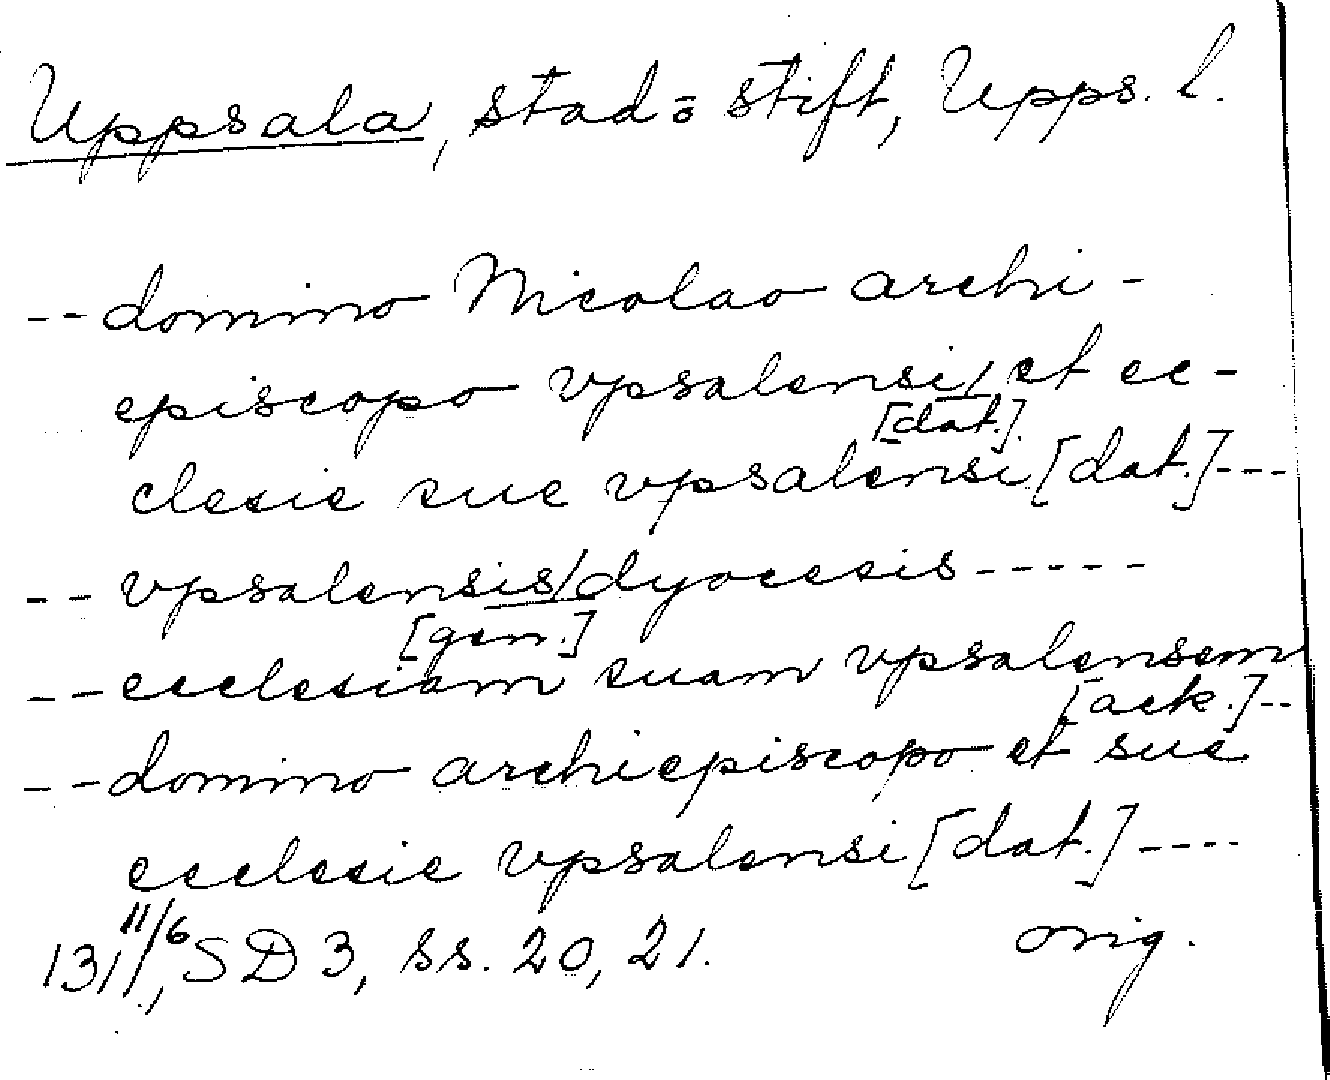 Uppsala, stad o. stift, Upps. l.
-- domino Nicolao archi-
episcopo vpsalensi/ et ec-
[dat.]
clesie sue vpsalensi [dat.] ---
-- vpsalensis/ dyocesis -----
[gen.]
-- ecclesiam suam vpsalensem
[ack.] --
-- domino archiepiscopo et sue
ecclesie vpsalensi [dat.] ----
1311 11/6, SD 3, ss. 20, 21. orig.